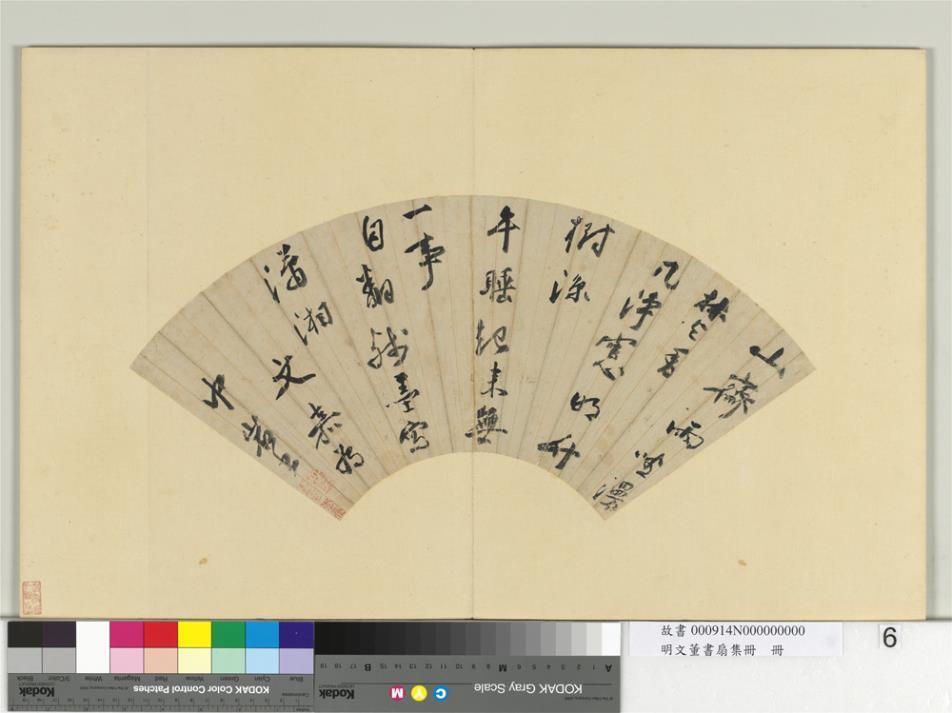 山齋雨過漫
林香
几淨窓明竹
樹涼
午睡起來無
一事
自翻殘墨寫
瀟湘
文嘉為
中
故書 000914N000000000
明文董書扇集冊 冊
6
KODAK Color Control Patches
Blue Cyan Green Yellow Red Magenta White 3/Color Black
Kodak
KODAK Gray Scale
C Y M
Kodak
A 1 2 3 4 5 6 M 8 9 10 11 12 13 14 15 B 17 18 19